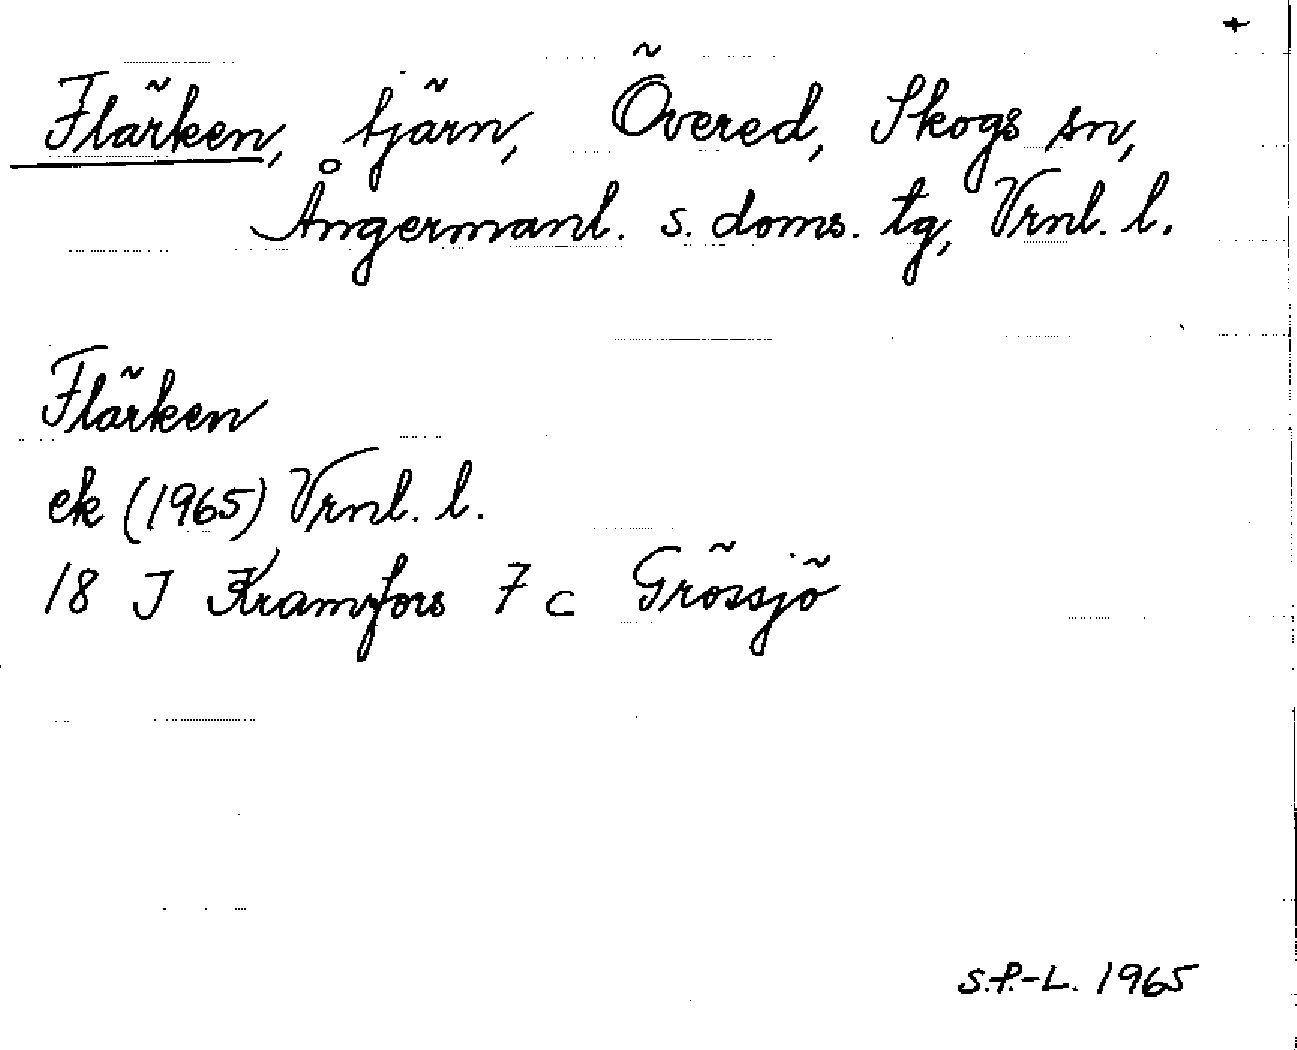 +
Flärken, tjärn, Övered, Skogs sn,
Ångermanl. s. doms. tg, Vrnl. l.
Flärken
ek (1965) Vrnl. l.
18 J Kramfors 7 c Grössjö
S.P.-L. 1965